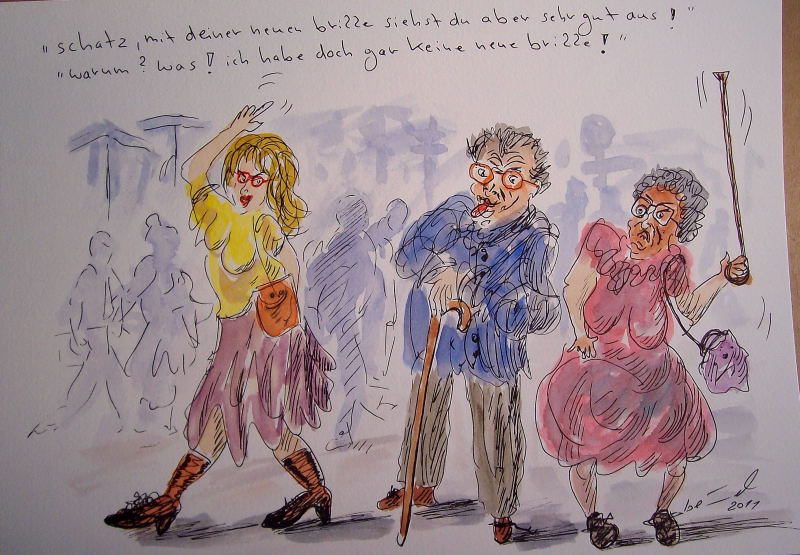 "schatz, mit deiner neuen brille siehst du aber sehr gut aus!"
"warum? was! ich habe doch gar keine neue brille!"
2011